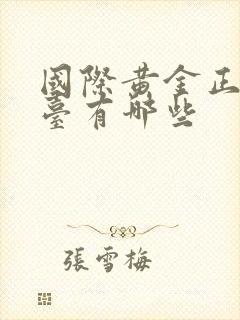 國際黃金正
臺有哪些
張雪梅